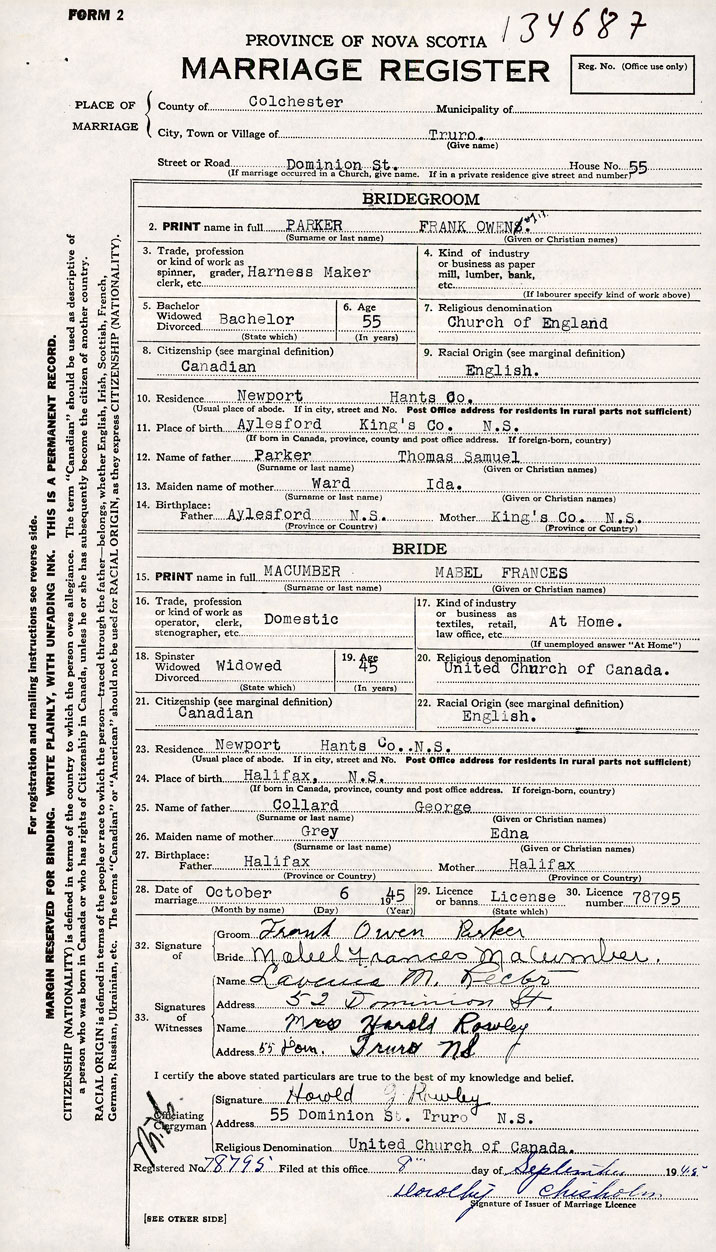 FORM 2
134687
PROVINCE OF NOVA SCOTIA
MARRIAGE REGISTER
Reg. No. (Office use only)
PLACE OF MARRIAGE
County of Colchester Municipality of
City, Town or Village of Truro.
(Give name)
Street or Road Dominion St. House No. 55
(If marriage occurred in a Church, give name. If in a private residence give street and number)
BRIDEGROOM
2. PRINT name in full PARKER FRANK OWEN
(Surname or last name) (Given or Christian names)
3. Trade, profession or kind of work as spinner, grader, clerk, etc. Harness Maker
4. Kind of industry or business as paper mill, lumber, bank, etc.
(If labourer specify kind of work above)
5. Bachelor Widowed Divorced Bachelor
(State which)
6. Age 55
(In years)
7. Religious denomination
Church of England
8. Citizenship (see marginal definition)
Canadian
9. Racial Origin (see marginal definition)
English.
10. Residence Newport Hants Co.
(Usual place of abode. If in city, street and No. Post Office address for residents in rural parts not sufficient)
11. Place of birth Aylesford King's Co. N.S.
(If born in Canada, province, county and post office address. If foreign-born, country)
12. Name of father Parker Thomas Samuel
(Surname or last name) (Given or Christian names)
13. Maiden name of mother Ward Ida.
(Surname or last name) (Given or Christian names)
14. Birthplace:
Father Aylesford N.S. Mother King's Co. N.S.
(Province or Country) (Province or Country)
BRIDE
15. PRINT name in full MACUMBER MABEL FRANCES
(Surname or last name) (Given or Christian names)
16. Trade, profession or kind of work as operator, clerk, stenographer, etc. Domestic
17. Kind of industry or business as textiles, retail, law office, etc. At Home.
(If unemployed answer "At Home")
18. Spinster Widowed Divorced Widowed
(State which)
19. Age 45
(In years)
20. Religious denomination
United Church of Canada.
21. Citizenship (see marginal definition)
Canadian
22. Racial Origin (see marginal definition)
English.
23. Residence Newport Hants Co. N.S.
(Usual place of abode. If in city, street and No. Post Office address for residents in rural parts not sufficient)
24. Place of birth Halifax, N.S.
(If born in Canada, province, county and post office address. If foreign-born, country)
25. Name of father Collard George
(Surname or last name) (Given or Christian names)
26. Maiden name of mother Grey Edna
(Surname or last name) (Given or Christian names)
27. Birthplace:
Father Halifax Mother Halifax
(Province or Country) (Province or Country)
28. Date of marriage October 6 1945
(Month by name) (Day) (Year)
29. Licence or banns. License
(State which)
30. Licence number 78795
32. Signature of
Groom Frank Owen Parker
Bride Mabel Frances Macumber.
33. Signatures of Witnesses
Name M.
Address 52 Dominion St.
Name Mrs Harold Rowley
Address 55 Dom. Truro NS
I certify the above stated particulars are true to the best of my knowledge and belief.
Officiating Clergyman
Signature Harold G Rowley
Address 55 Dominion St. Truro N.S.
Religious Denomination United Church of Canada.
Registered No. 78795 Filed at this office 8 day of September 1945
Dorothy Chisholm
Signature of Issuer of Marriage Licence
[SEE OTHER SIDE]
For registration and mailing instructions see reverse side.
MARGIN RESERVED FOR BINDING. WRITE PLAINLY, WITH UNFADING INK. THIS IS A PERMANENT RECORD.
CITIZENSHIP (NATIONALITY) is defined in terms of the country to which the person owes allegiance. The term "Canadian" should be used as descriptive of
a person who was born in Canada or who has rights of Citizenship in Canada, unless he or she has subsequently become the citizen of another country.
RACIAL ORIGIN is defined in terms of the people or race to which the person—traced through the father—belongs, whether English, Irish, Scottish, French,
German, Russian, Ukrainian, etc. The terms "Canadian" or "American" should not be used for RACIAL ORIGIN, as they express CITIZENSHIP (NATIONALITY).